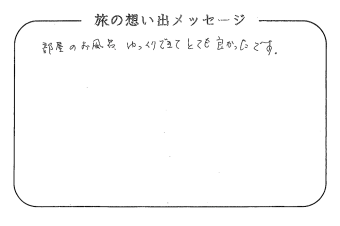 旅の想い出メッセージ
部屋のお風呂、ゆっくりできてとても良かったです。